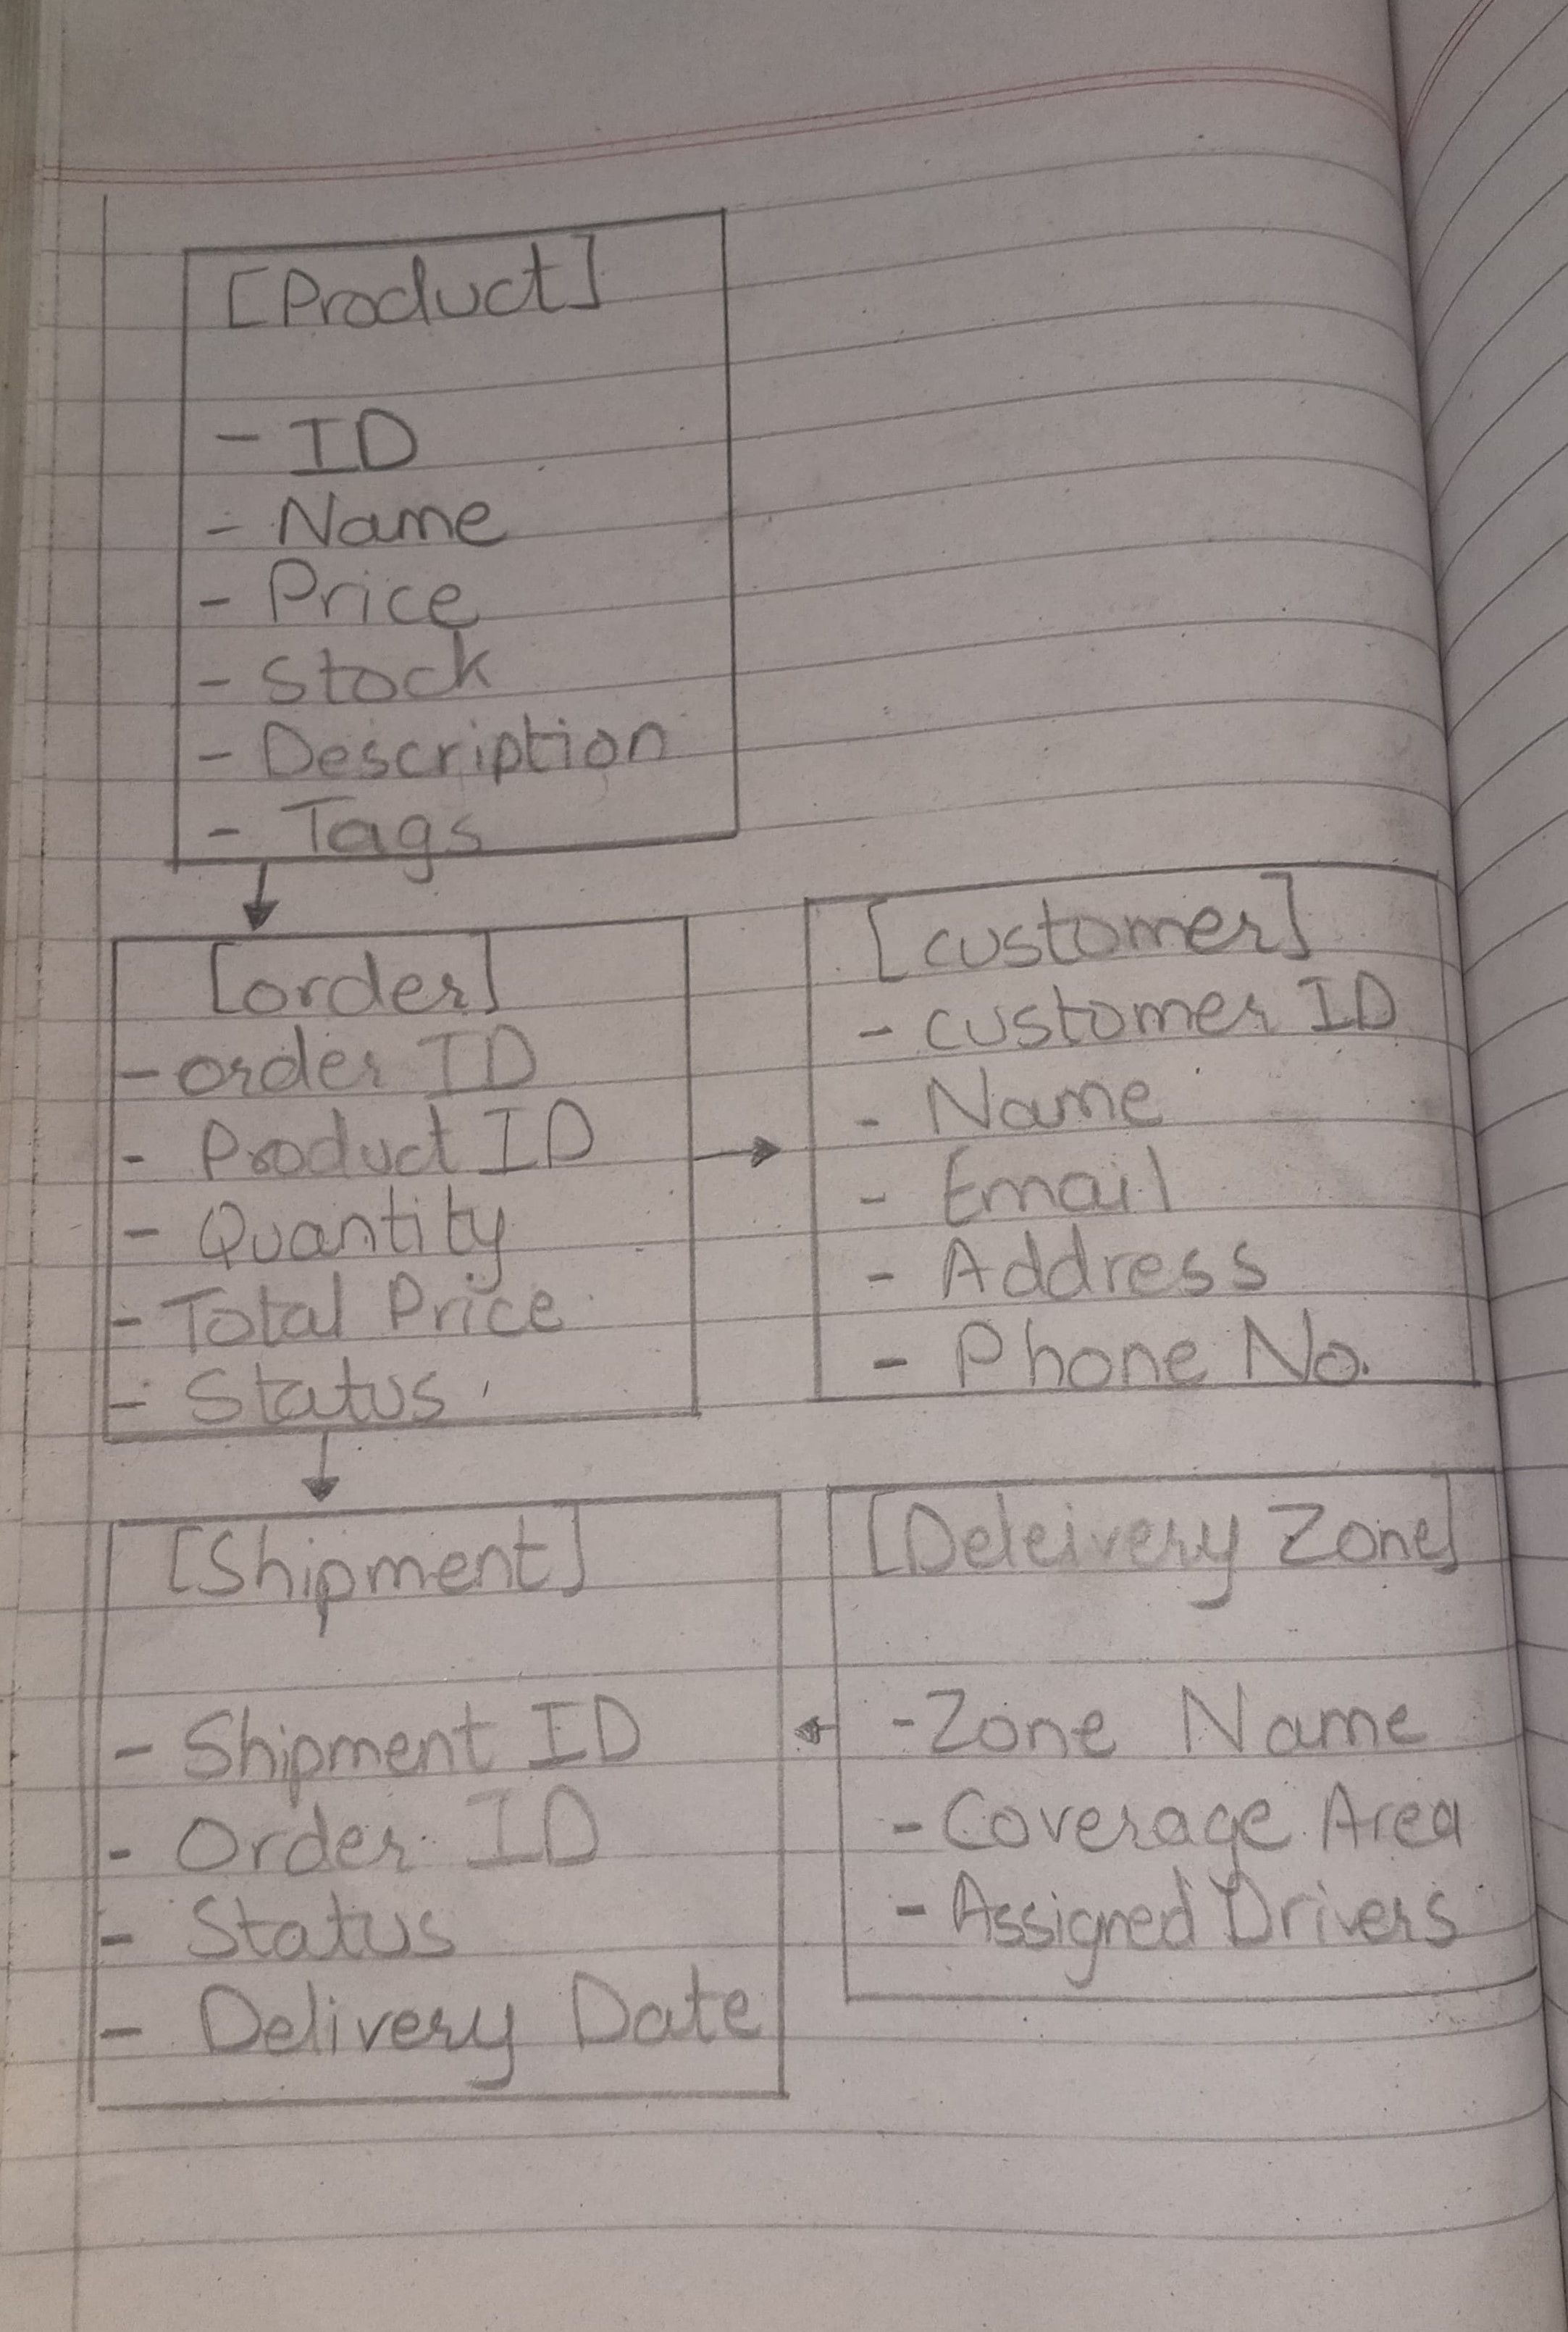 [Product]
- ID
- Name
- Price
- Stock
- Description
- Tags
[order]
- order ID
- Product ID
- Quantity
- Total Price
- Status
[customer]
- customer ID
- Name
- Email
- Address
- Phone No.
[Shipment]
- Shipment ID
- Order ID
- Status
- Delivery Date
[Deleivery Zone]
- Zone Name
- Coverage Area
- Assigned Drivers